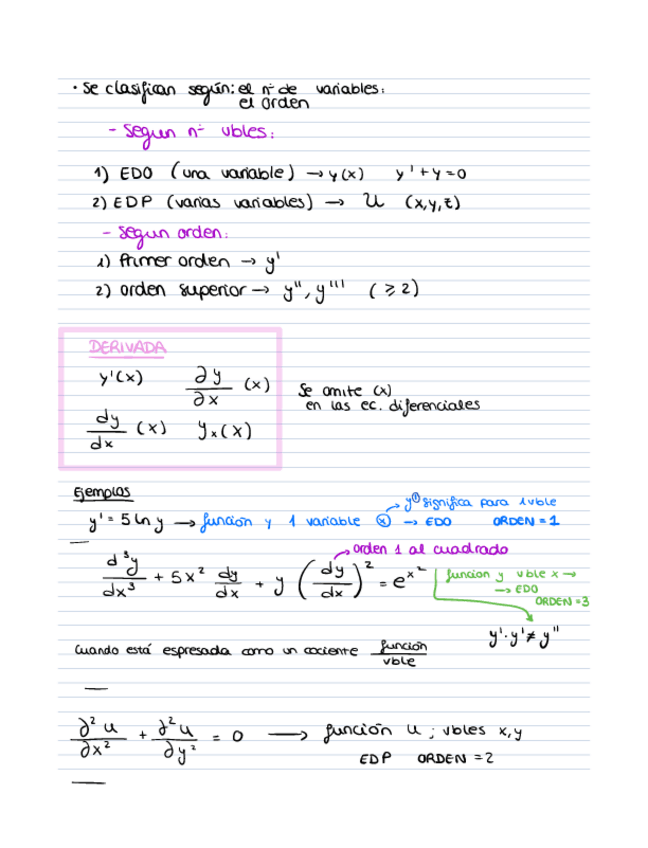 · Se clasifican según: el nº de variables:
el orden
- Segun nº vbles:
1) EDO (una variable) → y(x) y' + y = 0
2) EDP (varias variables) → U (x,y,z)
- Segun orden:
1) Primer orden → y'
2) orden superior → y'', y''' (≥2)
DERIVADA
y'(x) ∂y/∂x (x)
dy/dx (x) yₓ(x)
Se omite (x)
en las ec. diferenciales
Ejemplos
y' significa para 1 vble
y' = 5 ln y → función y 1 variable (x) → EDO ORDEN = 1
orden 1 al cuadrado
d³y/dx³ + 5x² dy/dx + y (dy/dx)² = e^x²
funcion y vble x →
→ EDO
ORDEN = 3
y'·y' ≠ y''
Cuando está espresada como un cociente función/vble
∂²u/∂x² + ∂²u/∂y² = 0 → función u ; vbles x,y
EDP ORDEN = 2